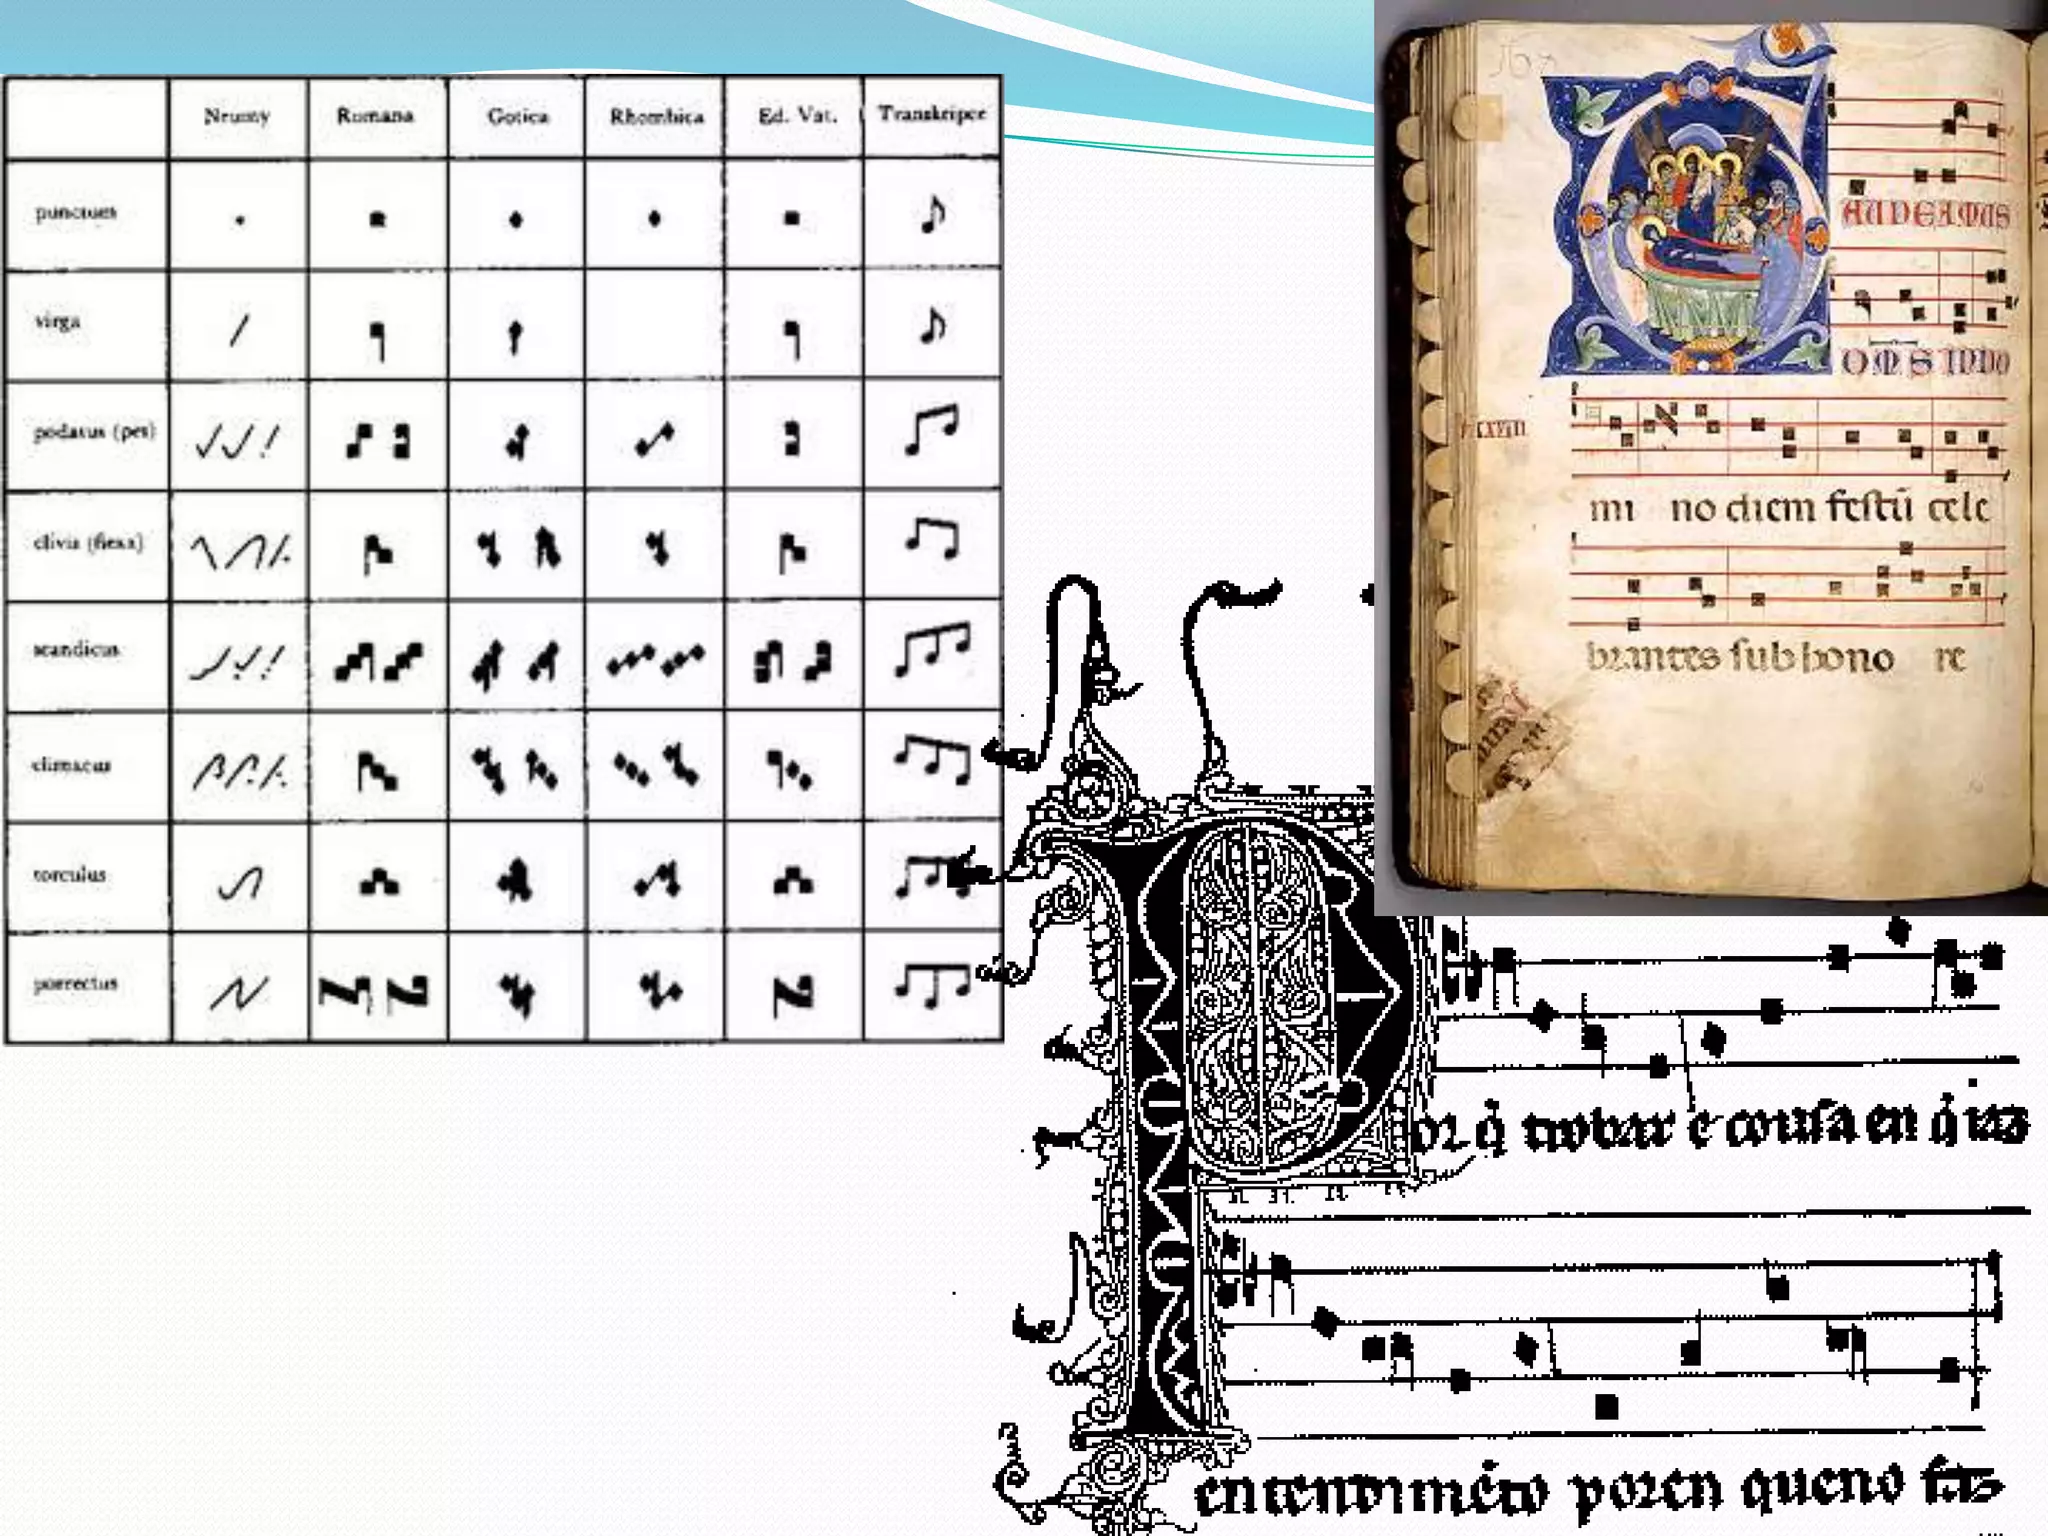 Neumy Romana Gotica Rhombica Ed. Vat. Transkripce
punctum
virga
podatus (pes)
clivis (flexa)
scandicus
climacus
torculus
porrectus
167
AUDEAMUS
OMS IN DO
mi no diem festū cele
brantes sub hono re
or q̇ trobar e cousa en q̇ iaz
entendimēto poren queno faz